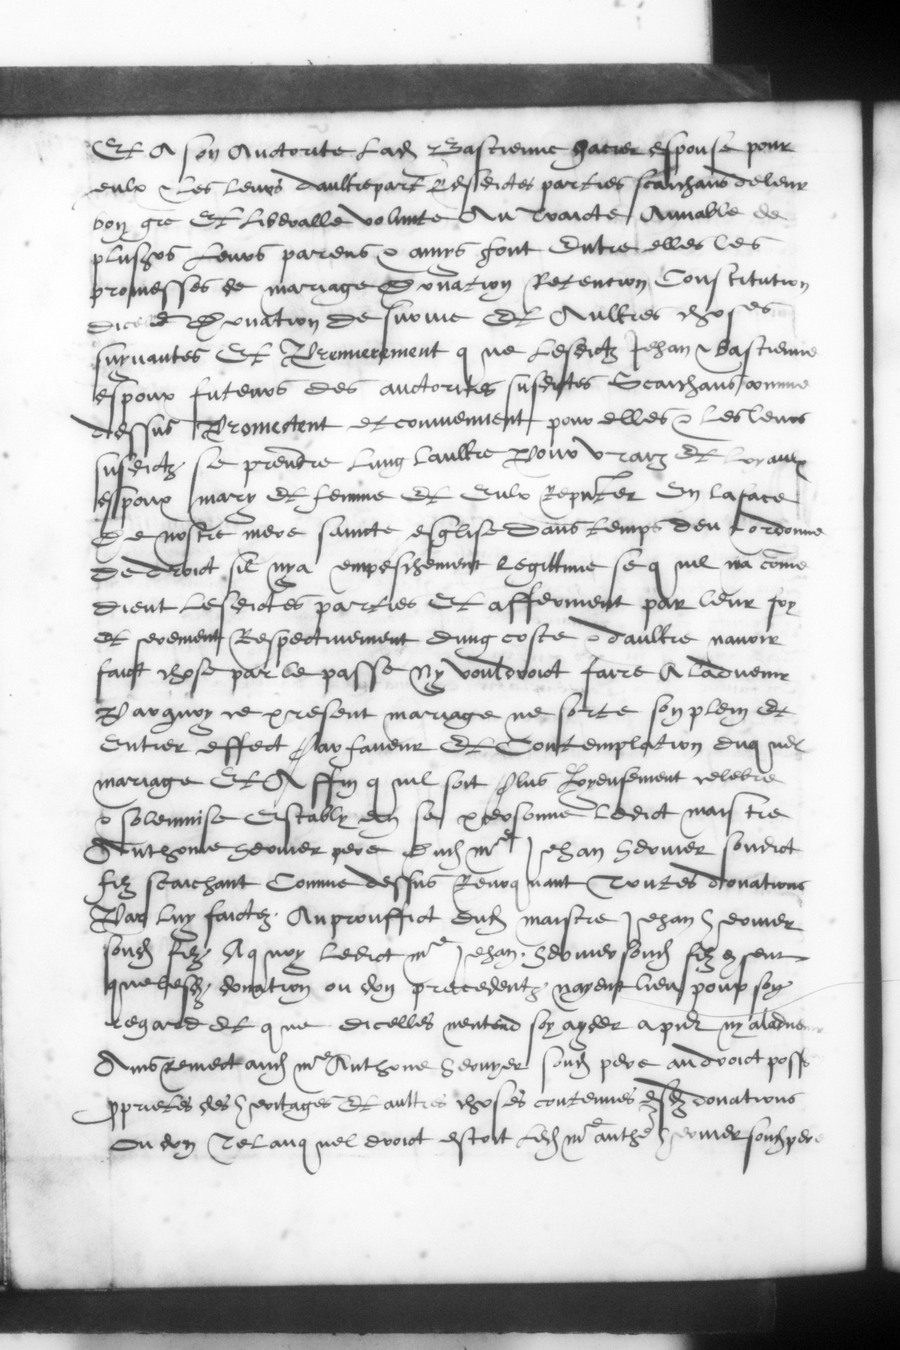 Et A son Auctorite Lad Bastienne gacier espouse pour
eulx & les leurs daultrepart Lesdictes parties scaichans deleur
bon gre Et Liberalle volunte Au traicte Amiable de
plus^rs Leurs parens & amys font Entre elles les
promesses de mariage Donation Retencion Constitution
dicelle Donation De somme Et Aultres choses
suyvantes Et Premierement q ue Lesdictz Jehan & Bastienne
espoux futeurs des auctorites susdictes Scaichans comme
dessus Promectent et conviennent pour elles & les leurs
susdictz se prendre Lung Laultre Pour vrayz Et Loyaulx
espoux mary Et femme Et Eulx Reputer En laface
De nostre mere saincte esglise Dans temps deu & ordonne
De droict sil nya empeschement legittime se q uil na come
dient Lesdictes parties Et afferment par leur foy
et serement Respectivement dung coste & daultre navoir
faict chose par le passe Ny vouldroict faire A ladvenir
Parquoy ce present mariage ne sorte son plein Et
Entier effect Par faveur Et Contemplation duq uel
mariage Et Affin q uil soit Plus Joyeusement celebre
& solemnise Estably En sa personne Ledict maistre
Anthoine pere dud m^e Jehan sondict
filz scaichant Comme dessus Revoq uant Toutes donations
Par Luy faictez Auprouffict dud maistre Jehan
sond filz Aq uoy Ledict m^e Jehan sond filz
quelesd donation ou don precedentz nayent lieu pour son
regard Et q ue dicelles nentend soy ayder apnt ny aladvenir
Ains remect aud m^e Anthoine sond pere audroict poss
pprietes des heritages Et aultres choses contenues esd donations
Ou don Tel auq uel droict estoit Led m^e anthe sond pere